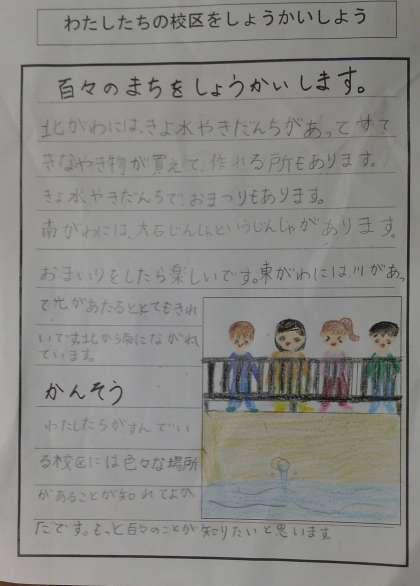 わたしたちの校区をしょうかいしよう
百々のまちをしょうかいします。
北がわには、きよ水やきだんちがあって、すて
きなやき物が買えて、作れる所もあります。
きよ水やきだんちで、おまつりもあります。
南がわには、大石じんじゃというじんじゃがあります。
おまいりをしたら楽しいです。東がわには、川があっ
て光があたるととてもきれ
いです。北から南にながれ
ています。
かんそう
わたしたちがすんでい
る校区には色々な場所
があることが知れてよか
たです。もっと百々のことが知りたいと思います